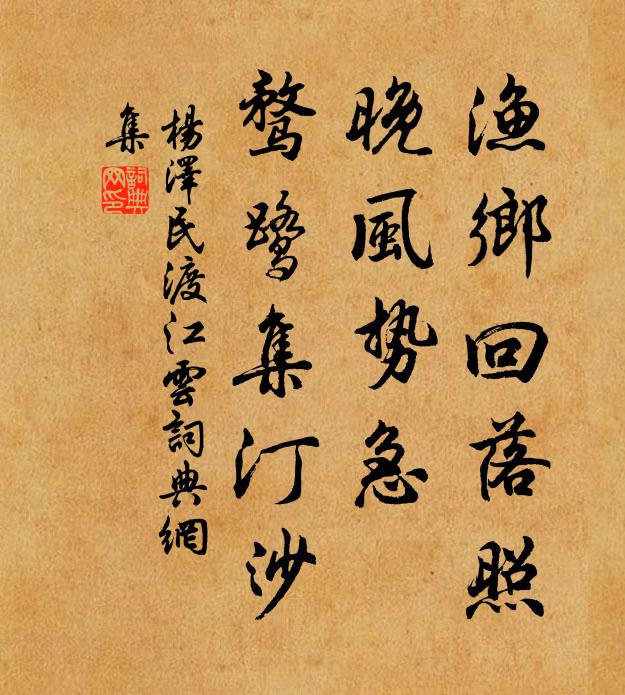 漁鄉回落照
晚風勢急
鶩鷺集汀沙
楊澤民渡江雲詞典網
集
詞典
网印